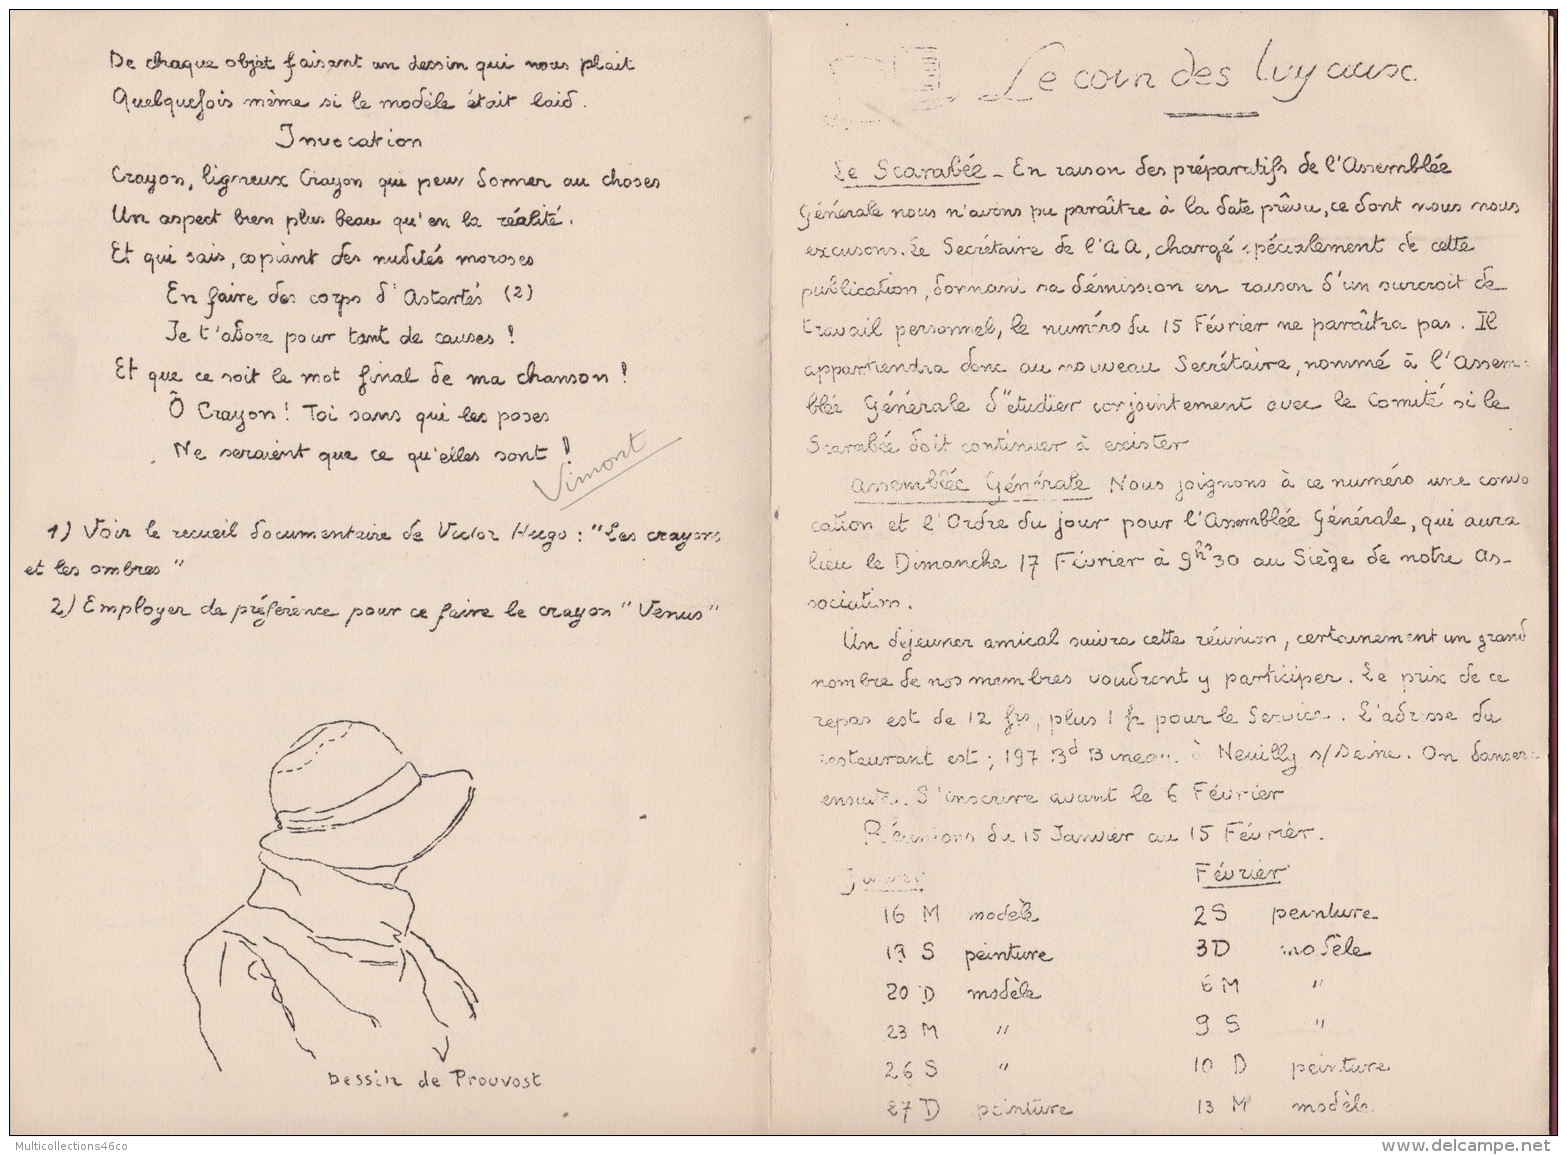 De chaque objet faisant un dessin qui nous plait
Quelquefois même si le modèle était laid.
Invocation
Crayon, ligneux Crayon qui peux donner au choses
Un aspect bien plus beau qu'en la réalité.
Et qui sais, copiant des nudités moroses
En faire des corps d'Astartés (2)
Je t'adore pour tant de causes !
Et que ce soit le mot final de ma chanson !
Ô Crayon ! Toi sans qui les poses
Ne seraient que ce qu'elles sont !
Vimont
1) Voir le recueil documentaire de Victor Hugo : "Les crayons
et les ombres"
2) Employer de préférence pour ce faire le crayon "Venus"
Dessin de Prouvost
Le coin des tuyaux.
Le Scarabée - En raison des préparatifs de l'Assemblée
Générale nous n'avons pu paraître à la date prévu, ce dont nous nous
excusons. Le Secrétaire de l'AA, chargé spécialement de cette
publication, donnant sa démission en raison d'un surcroit de
travail personnel, le numéro du 15 Février ne paraîtra pas. Il
appartiendra donc au nouveau Secrétaire, nommé à l'Assem-
blée Générale d'étudier conjointement avec le Comité si le
Scarabée doit continuer à exister
Assemblée Générale Nous joignons à ce numéro une convo
cation et l'Ordre du jour pour l'Assemblée Générale, qui aura
lieu le Dimanche 17 Février à 9hs30 au Siège de notre As-
sociation.
Un dejeuner amical suivra cette réunion, certainement un grand
nombre de nos membres voudront y participer. Le prix de ce
repas est de 12 frs, plus 1 fr pour le Service. L'adresse du
restaurant est ; 197 Bd Bineau à Neuilly s/Seine. On dansera
ensuite. S'inscrire avant le 6 Février
Réunions du 15 Janvier au 15 Février.
Janvier Février
16 M modèle 2 S peinture
19 S peinture 3 D modèle
20 D modèle 6 M "
23 M " 9 S "
26 S " 10 D peinture
27 D peinture 13 M modèle
Multicollections46co
www.delcampe.net